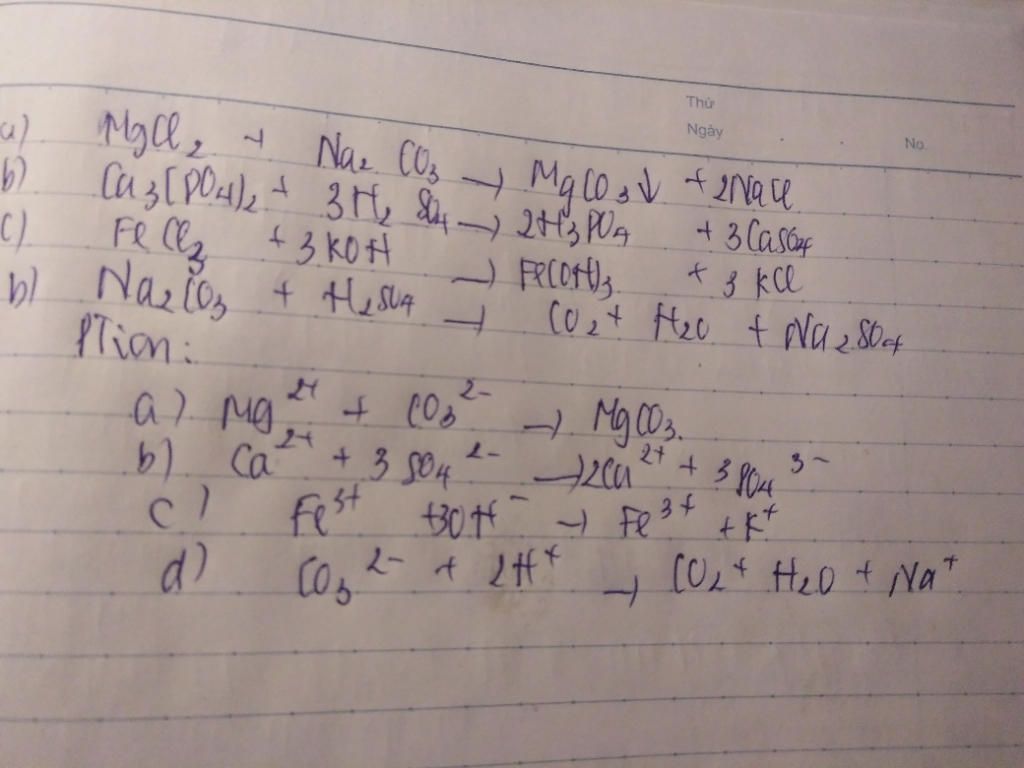 Thứ
Ngày
No.
a) MgCl₂ + Na₂CO₃ → MgCO₃↓ + 2NaCl
b) Ca₃(PO₄)₂ + 3H₂SO₄ → 2H₃PO₄ + 3CaSO₄
c) FeCl₃ + 3KOH → Fe(OH)₃ + 3KCl
b) Na₂CO₃ + H₂SO₄ → CO₂ + H₂O + Na₂SO₄
PTion:
a) Mg²⁺ + CO₃²⁻ → MgCO₃.
b) Ca²⁺ + 3SO₄²⁻ → 2Ca²⁺ + 3PO₄³⁻
c) Fe³⁺ +3OH⁻ → Fe³⁺ + K⁺
d) CO₃²⁻ + 2H⁺ → CO₂ + H₂O + Na⁺